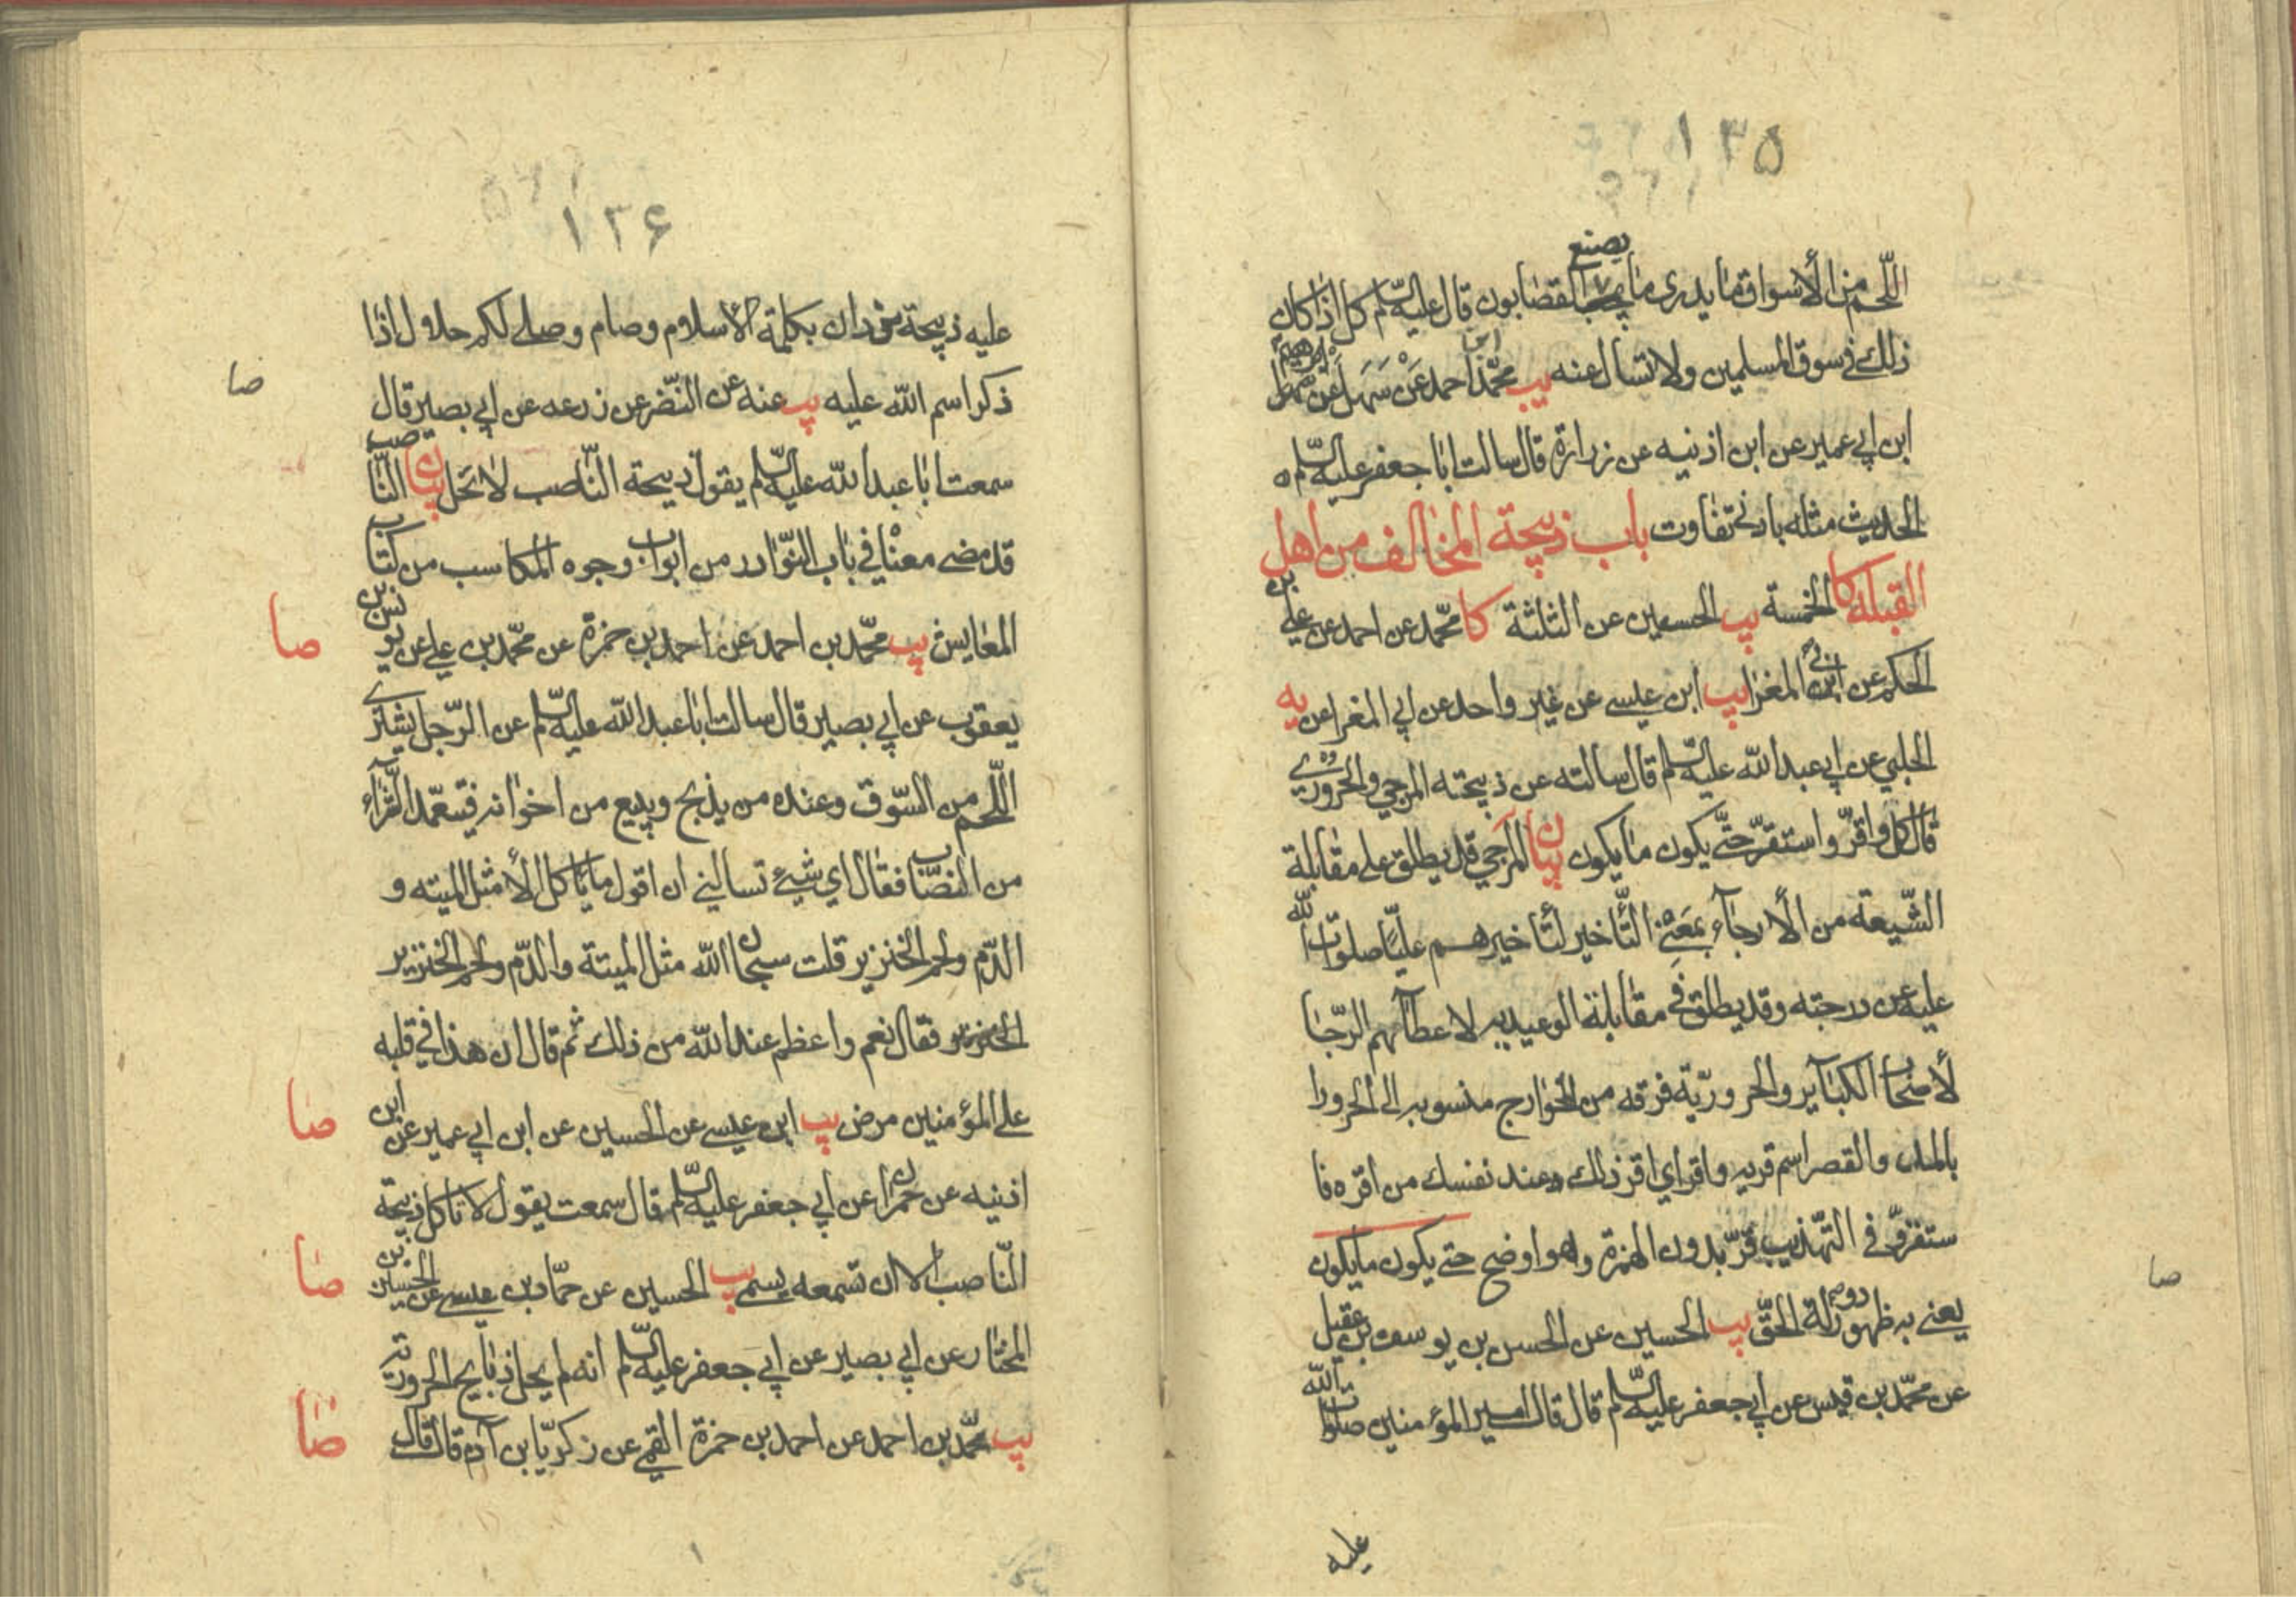 ۱۳۵
يصنع
اللّحم من الأسواق فما يدرى ما القصابون قال عليه السّلم كل اذا كان
ذلك فى سوق المسلمين ولا تسال عنه يب محمّد احمد عن سهل عن
ابن ابي عمير عن ابن اذنيه عن زرارة قال سالت ابا جعفر عليه السّلم
الحديث مثله بادنى تفاوت باب ذبيحة المخالف من اهل
القبلة كا الخمسة يب الحسين عن الثلثة كا محمّد عن احمد عن علي بن
الحكم عن ابي المغرا يب ابن عيسى عن غير واحد عن ابي المغرا عن يه
الحلبي عن ابي عبد الله عليه السّلم قال سالته عن ذبيحته المرجي والحرورى
قال كل واقرّ واستقرّ حتّى يكون ما يكون بيان المرجي قد يطلق على مقابلة
الشّيعة من الأرجآء بمعنى التّأخير لتأخيرهم عليّا صلوات الله
عليه عن درجته وقد يطلق فى مقابلة الوعيديه لاعطآئهم الرّجا
لأصحاب الكبآير والحروريّة فرقه من الخوارج منسوبه الى الحرورا
بالمد والقصر اسم قريه واقر اي اقر ذلك عند نفسك من اقره فا
ستقرّ و فى التّهذيب قرّ بدون الهمزة وهو اوضح حتى يكون ما يكون
يعنى به ظهور دولة الحقّ يب الحسين عن الحسن بن يوسف بن عقيل
عن محمّد بن قيس عن ابي جعفر عليه السّلم قال قال امير المؤمنين صلوات الله
عليه
صا
۱۳۶
عليه ذبيحة من دان بكلمة الأسلام وصام وصلى لكم حلال اذا
ذكر اسم الله عليه يب عنه عن النّضر عن زرعه عن ابي بصير قال
سمعت ابا عبد الله عليه السّلم يقول ذبيحة النّاصب لا تحل بيان النّاصب
قد مضى معناه في باب النّوادر من ابواب وجوه المكاسب من كتاب
المعايش يب محمّد بن احمد عن احمد بن حمزة عن محمّد بن علي عن يونس بن
يعقوب عن ابي بصير قال سالت ابا عبد الله عليه السّلم عن الرّجل يشترى
اللّحم من السّوق وعنده من يذبح ويبيع من اخوانه فيتعمّد الشّرآء
من النصّاب فقال اي شيئ تسالني ان اقول ما يأكل الأ مثل الميته و
الدّم ولحم الخنزير قلت سبحان الله مثل الميتة والدّم ولحم الخنزير
فقال نعم واعظم عند الله من ذلك ثم قال ان هذا في قلبه
على المؤمنين مرض يب ابن عيسى عن الحسين عن ابن ابي عمير عن ابن
اذنيه عن حمران عن ابي جعفر عليه السّلم قال سمعت يقول لا تاكل ذبيحة
النّاصب الا ان تسمعه يسمى يب الحسين عن حمّاد بن عيسى عن الحسين بن
المختار عن ابي بصير عن ابي جعفر عليه السّلم انه لم يحل ذبايح الحروريّة
يب محمّد بن احمد عن احمد بن حمزة القمي عن زكريّا بن آدم قال قال
صا
صا
صا
صا
صا